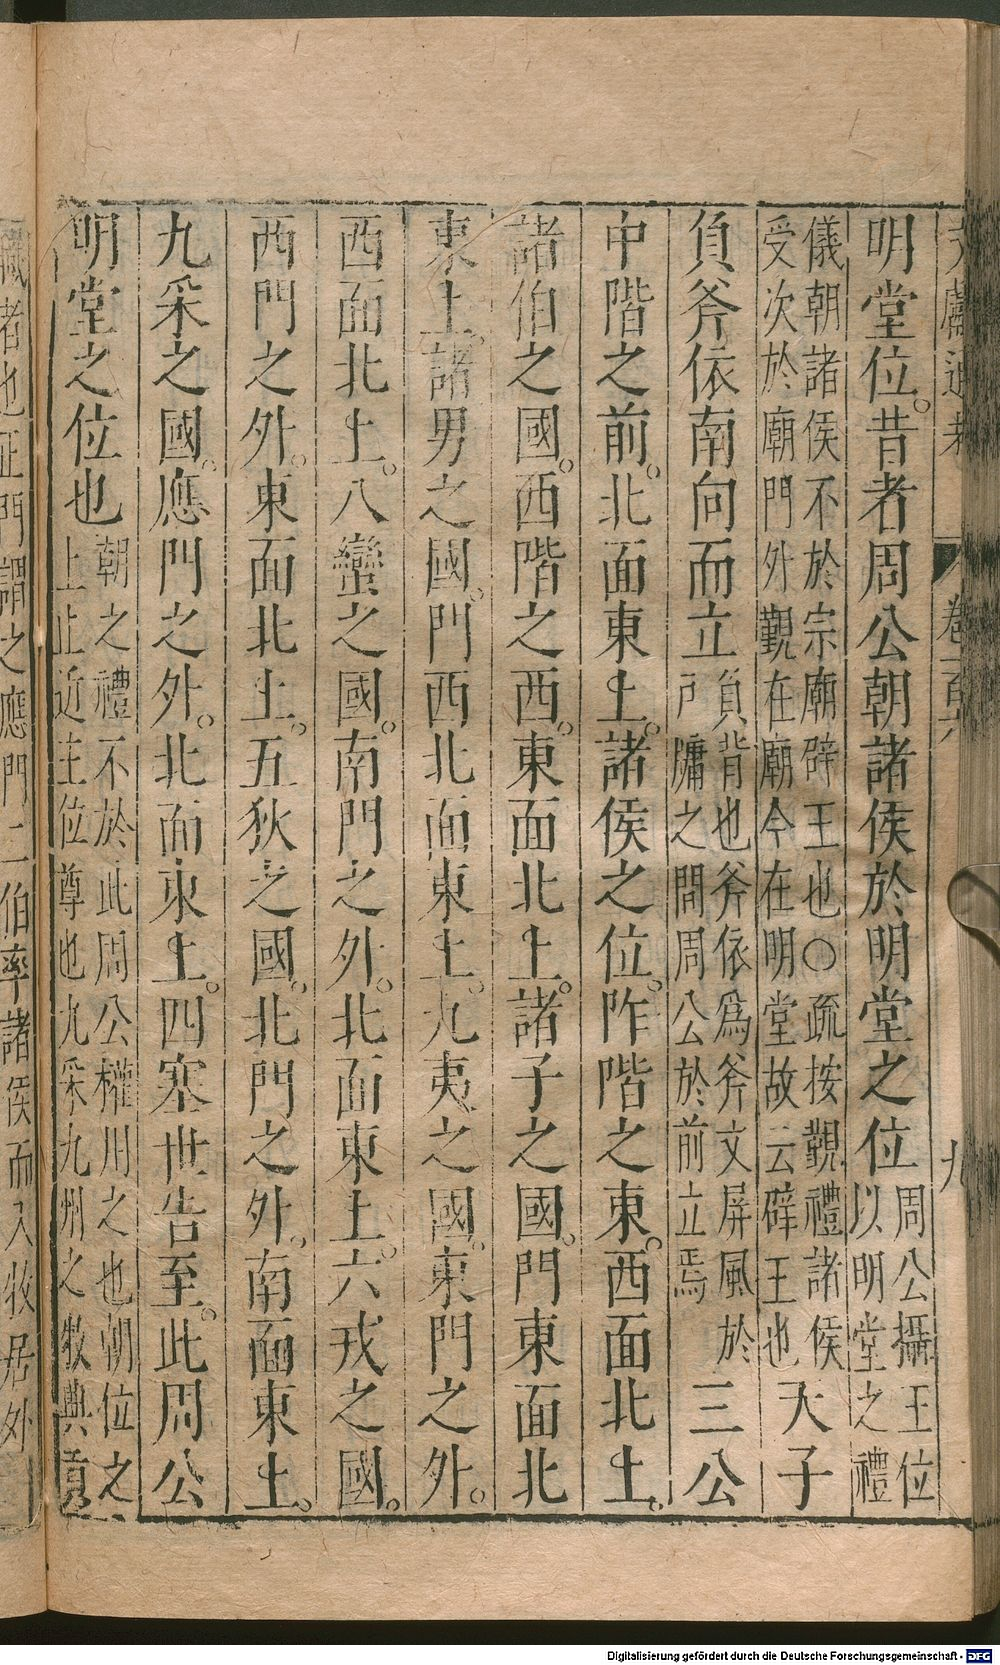 文獻通考 卷百六 九
明堂位。昔者周公朝諸侯於明堂之位周公攝王位
以明堂之禮
儀朝諸侯不於宗廟辟王也○疏按覲禮諸侯
受次於廟門外覲在廟今在明堂故云辟王也天子
負斧依南向而立負背也斧依爲斧文屏風於
戶牖之間周公於前立焉三公
中階之前。北面東上。諸侯之位。阼階之東。西面北上。
諸伯之國。西階之西。東面北上。諸子之國。門東面北
東上。諸男之國。門西北面東上。九夷之國。東門之外。
西面北上。八蠻之國。南門之外。北面東上。六戎之國。
西門之外。東面北上。五狄之國。北門之外。南面東上。
九采之國。應門之外。北面東上。四塞世告至。此周公
明堂之位也朝之禮不於此周公權用之也朝位之
上上近主位尊也九采九州之牧典貢
職者也正門謂之應門二伯率諸侯而入牧居外
Digitalisierung gefördert durch die Deutsche Forschungsgemeinschaft - DFG